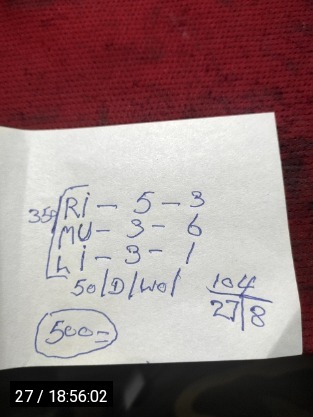 350 Ri - 5 - 3
MU - 3 - 6
Li - 3 - 1
50/D/wo/
104
27/8
500=
27 / 18:56:02